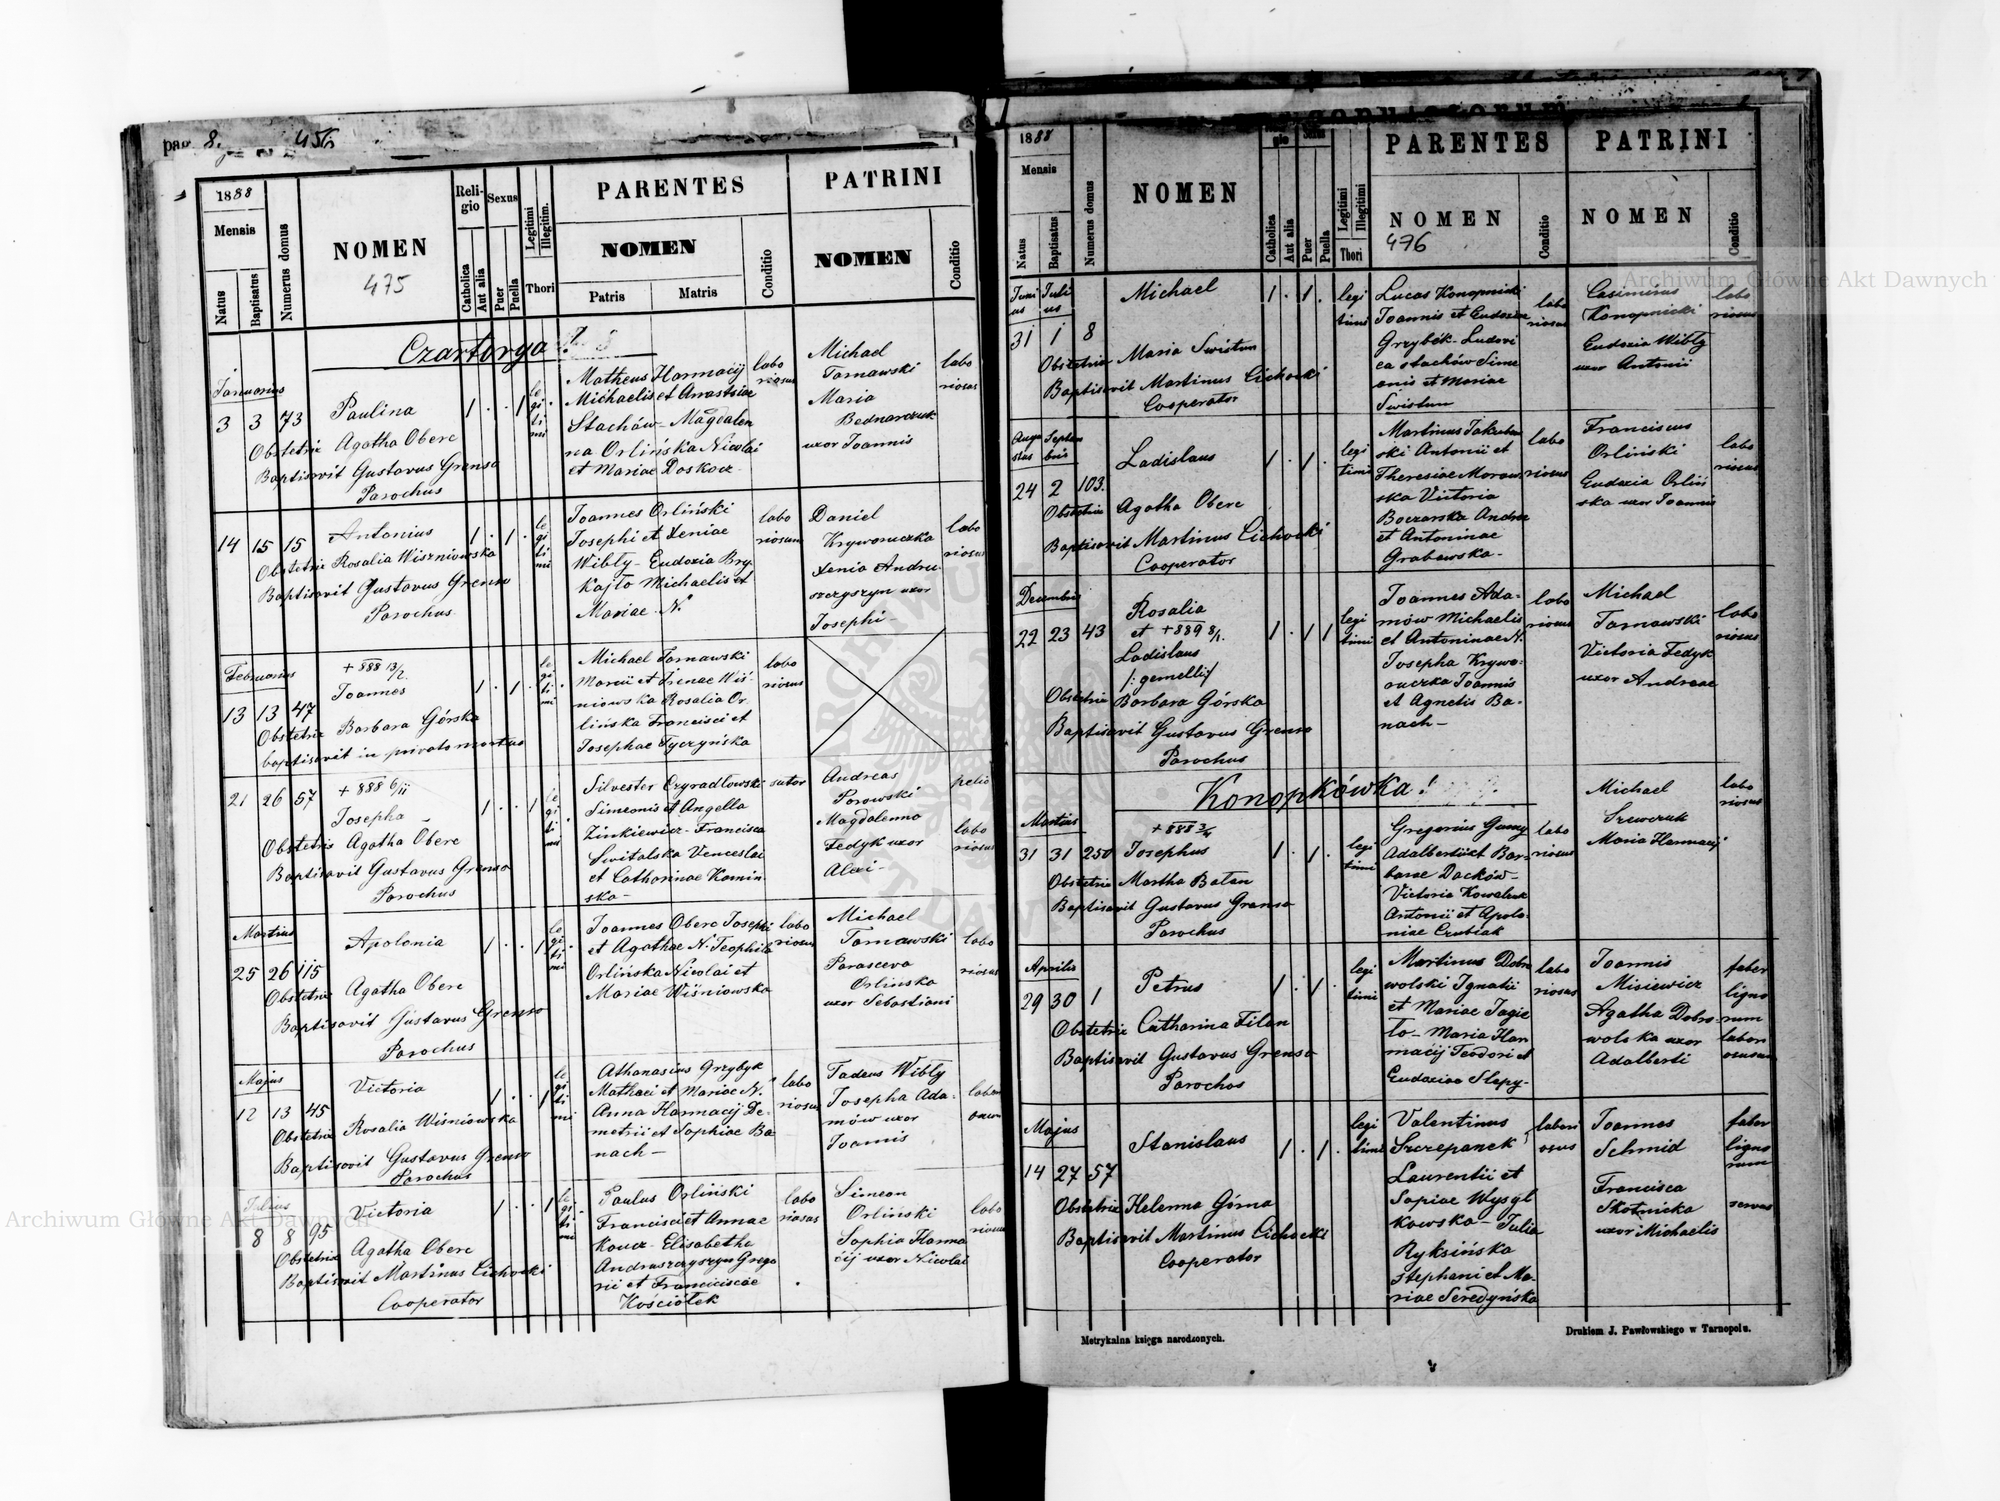 pag. 8. 456
1888
Mensis
Natus
Baptisatus
Numerus domus
NOMEN
475
Religio
Catholica
Aut alia
Sexus
Puer
Puella
Legitimi
Illegitim.
Thori
PARENTES
NOMEN
Patris
Matris
Conditio
PATRINI
NOMEN
Conditio
Czartorya
Januarius
3 3 73 Paulina 1 . . 1 legitimi
Obstetrix Agatha Oberc
Baptisavit Gustavus Grenso
Parochus
Matheus Harmacij
Michaelis et Anastasiae
Stachów - Magdalen
na Orlińska Nicolai
et Mariae Doskocz -
laboriosus
Michael
Tarnawski
Maria
Bednarczuk
uxor Joannis
laboriosus
14 15 15 Antonius 1 . 1 . legitimi
Obstetrix Rosalia Wiszniowska
Baptisavit Gustavus Grenso
Parochus
Joannes Orliński
Josephi et Xeniae
Wibły - Eudoxia Bry
kajło Michaelis et
Mariae N.
laboriosus
Daniel
Kryworuczka
Xenia Andru
szczyszyn uxor
Josephi
laboriosus
Februarius
+ 888 13/2
13 13 47 Joannes 1 . 1 . legitimi
Obstetrix Barbara Górska
baptisavit in privato mortuus
Michael Tarnawski
Marcii et Irenae Wiś
niowska Rosalia Or
lińska Francisci et
Josephae Tyczyńska
laboriosus
+ 888 6/11
21 26 57 Josepha 1 . . 1 legitimi
Obstetrix Agatha Oberc
Baptisavit Gustavus Grenso
Parochus
Silvester Czyradlowski
Simeonis et Angella
Zinkiewicz - Francisca
Switalska Venceslai
et Catharinae Kamin
ska -
sutor
Andreas
Porowski
Magdalenna
Fedyk uxor
Alexi -
pelio
laboriosus
Martius
25 26 115 Apolonia 1 . . 1 legitimi
Obstetrix Agatha Oberc
Baptisavit Gustavus Grenso
Parochus
Joannes Oberc Josephi
et Agathae N. Teophila
Orlińska Nicolai et
Mariae Wiśniowska
laboriosus
Michael
Tarnawski
Parasceva
Orlińska
uxor Sebastiani
laboriosus
Majus
12 13 45 Victoria 1 . . 1 legitimi
Obstetrix Rosalia Wiśniowska
Baptisavit Gustavus Grenso
Parochus
Athanasius Grzybyk
Mathaei et Mariae N.
Anna Harmacij De-
metrii et Sophiae Ba
nach -
laboriosus
Tadeus Wibły
Josepha Ada-
mów uxor
Joannis
Julius
8 8 95 Victoria 1 . . 1 legitimi
Obstetrix Agatha Oberc
Baptisavit Martinus Cichocki
Cooperator
Paulus Orliński
Francisci et Annae
Koucz - Elisabetha
Andruszczyszyn Grego
rii et Franciscae
Kościółek
laboriosus
Simeon
Orliński
Sophia Harma
cij uxor Nicolai
laboriosus
1888
Mensis
Natus
Baptisatus
Numerus domus
NOMEN
Catholica
Aut alia
Puer
Puella
Legitimi
Illegitimi
Thori
PARENTES
NOMEN
476
Conditio
PATRINI
NOMEN
Conditio
Junius Julius
31 1 8 Michael 1 . 1 . legitimi
Obstetrix Maria Swistun
Baptisavit Martinus Cichocki
Cooperator
Lucas Konopnicki
Joannis et Eudoxiae
Grzybék - Ludovi
ca Stachów Sime
onis et Mariae
Swistun
laboriosus
Casimirus
Konopnicki
Eudoxia Wibły
uxor Antonii
laboriosus
Augustus Septembris
24 2 103. Ladislaus 1 . 1 . legitimi
Obstetrix Agatha Oberc
Baptisavit Martinus Cichocki
Cooperator
Martinus Jakubow
ski Antonii et
Theresiae Moraw
ska Victoria
Boczarska Andreae
et Antoninae
Grabowska -
laboriosus
Franciscus
Orliński
Eudoxia Orliń
ska uxor Joannis
laboriosus
Decembris
22 23 43 Rosalia
et + 889 8/1.
Ladislaus
/: gemelli :/
1 . 1 1 legitimi
Obstetrix Barbara Górska
Baptisavit Gustavus Grenso
Parochus
Joannes Ada-
mów Michaelis
et Antoninae N.
Josepha Krywo-
ruczka Joannis
et Agnetis Ba-
nach -
laboriosus
Michael
Tarnawski
Victoria Fedyk
uxor Andreae
laboriosus
Konopkówka!
Martius
+ 888 3/4
31 31 250 Josephus 1 . 1 . legitimi
Obstetrix Martha Batan
Baptisavit Gustavus Grenso
Parochus
Gregorius Gumy
Adalberti et Bar-
barae Dacków -
Victoria Kowalczuk
Antonii et Apolo-
niae Czubiak
laboriosus
Michael
Szewczuk
Maria Harmacij
laboriosus
Aprilis
29 30 1 Petrus 1 . 1 . legitimi
Obstetrix Catharina Filan
Baptisavit Gustavus Grenso
Parochos
Martinus Dobro
wolski Ignatii
et Mariae Jagieł
ło - Maria Har
macij Teodori et
Eudoxiae Slepy -
laboriosus
Joannis
Misiewicz
Agatha Dobro-
wolska uxor
Adalberti
faber
lignorum
Majus
14 27 57 Stanislaus 1 . 1 . legitimi
Obstetrix Helenna Górna
Baptisavit Martinus Cichocki
Cooperator
Valentinus
Szczepanek
Laurentii et
Sopiae Wysygl
kowska - Julia
Ryksińska
Stephani et Ma-
riae Seredyńska
laboriosus
Joannes
Schmid
Francisca
Skotnicka
uxor Michaelis
faber
lignorum
servus
Metrykalna księga narodzonych.
Drukiem J. Pawłowskiego w Tarnopolu.
Archiwum Główne Akt Dawnych
Archiwum Główne Akt Dawnych